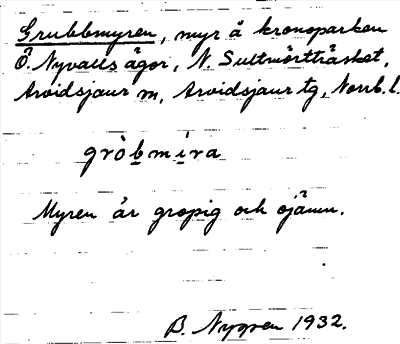 Grubbmyren, myr å kronoparken
Ö. Nyvalls ägor, N. Sultmörtträsket,
Arvidsjaur sn, Arvidsjaur tg, Norrb. l.
gròbmira
Myren är gropig och ojämn.
B. Nygren 1932.